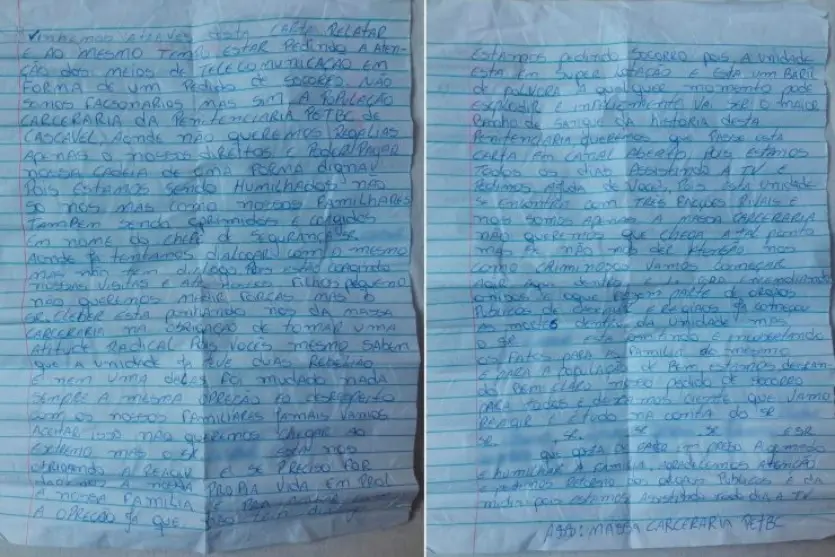 VINHEMOS ATRAVES DESTA CARTA RELATAR
E AO MESMO TEMPO ESTAR PEDINDO A ATEN-
ÇÃO DOS MEIOS DE TELECOMUNICAÇÃO EM
FORMA DE UM PEDIDO DE SOCORRO. NÃO
SOMOS FACSONARIOS MAS SIM A POPULAÇÃO
CARCERARIA DA PENITENCIARIA PETBC DE
CASCAVEL, AONDE NÃO QUEREMOS REBELIAS
APENAS O NOSSOS DIREITOS E PODER PAGAR
NOSSA CADEIA DE UMA FORMA DIGNA
POIS ESTAMOS SENDO HUMILHADOS NÃO
SO NOS MAS COMO NOSSOS FAMILHARES
TAMBEM SENDO OPRIMIDOS E COAGIDOS
EM NOME DO CHEFE DE SEGURANÇA SR.
AONDE JA TENTAMOS DIALOGAR COM O MESMO
MAS NÃO TEM DIALOGO POIS ESTÃO COAGINDO
NOSSAS VISITAS E ATE NOSSOS FILHOS PEQUENO
NÃO QUEREMOS MEDIR FORCAS MAS O
SR. CLEBER ESTA PONHANDO NOS DA MASSA
CARCERARIA NA OBRIGAÇÃO DE TOMAR UMA
ATITUDE RADICAL POIS VOCÊS MESMO SABEM
QUE A UNIDADE JA TEVE DUAS REBELIÃO
E NEM UMA DELAS FOI MUDADO NADA
SEMPRE A MESMA OPREÇÃO E O DESRESPEITO
COM OS NOSSOS FAMILIARES JAMAIS VAMOS
ACEITAR ISSO NÃO QUEREMOS CHEGAR AO
EXTREMO MAS O SR. ESTA NOS
OBRIGANDO A REAGIR E SE PRECISO FOR
A NOSSA PROPIA VIDA EM PROL
A NOSSA FAMILIA E PRA
A OPREÇÃO JA QUE NÃO TEM
ESTAMOS PEDINDO SOCORRO POIS A UNIDADE
ESTA EM SUPER LOTAÇÃO E ESTA UM BARIL
DE POLVORA A QUALQUER MOMENTO PODE
EXPLODIR E INFELIZMENTE VAI SER O MAIOR
BANHO DE SANGUE DA HISTORIA DESTA
PENITENCIARIA QUEREMOS QUE PASSE ESTA
CARTA EM CANAL ABERTO, POIS ESTAMOS
TODOS OS DIAS ASSISTINDO A TV E
PEDIMOS AJUDA DE VOCÊS, POIS ESTA UNIDADE
SE ENCONTRA COM TRES FACÇÕES RIVAIS E
NOIS SOMOS APENAS A MASSA CARCERARIA
NÃO QUEREMOS QUE CHEGA A TAL PONTO
MAS SE NÃO NOS DER ATENÇÃO NOS
COMO CRIMINOSOS VAMOS COMEÇAR
AGIR AQUI DENTRO E LA FORA
FAZEM PARTE DE ORGÃOS
PUBLICOS DE CASCAVEL E REGIÃO JA COMEÇOU
AS MORTES DENTRO DA UNIDADE MAS
O SR ESTA OMITINDO E
OS FATOS PARA AS FAMILIA DO MESMO
E PARA A POPULAÇÃO DE BEM ESTAMOS DEIXAN-
DO BEM CLARO NOSSO PEDIDO DE SOCORRO
PARA TODOS E DEIXAMOS CIENTE QUE VAMO
REAGIR E TUDO NA CONTA DO SR
SR. SR. SR E SR
QUE GOSTA DE BATE EM PRESO
E HUMILHAR A FAMILIA. AGRADECEMOS ATENÇÃO
E PEDIMOS RETORNO DOS ORGÃOS PUBLICOS E DA
MIDIA POIS ESTAMOS ASSISTINDO TODO DIA A TV
ASSO: MASSA CARCERARIA PETBC